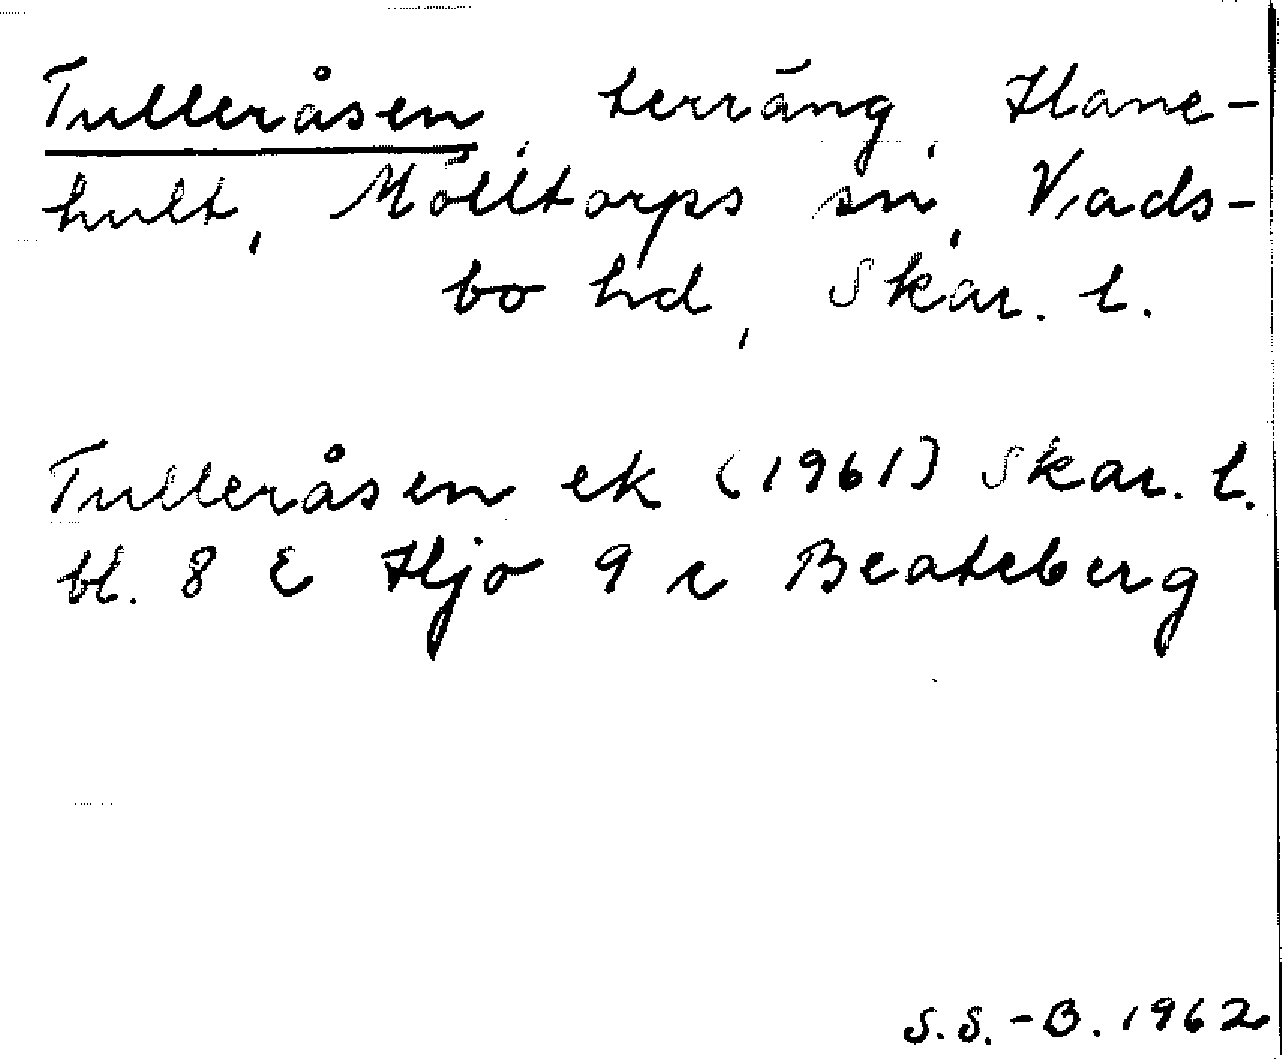 Tulleråsen, terräng, Hane-
hult, Mölltorps sn, Vads-
bo hd, Skar. l.
Tulleråsen ek (1961) Skar. l.
bl. 8 E Hjo 9 c Beateberg
S.S.-B. 1962